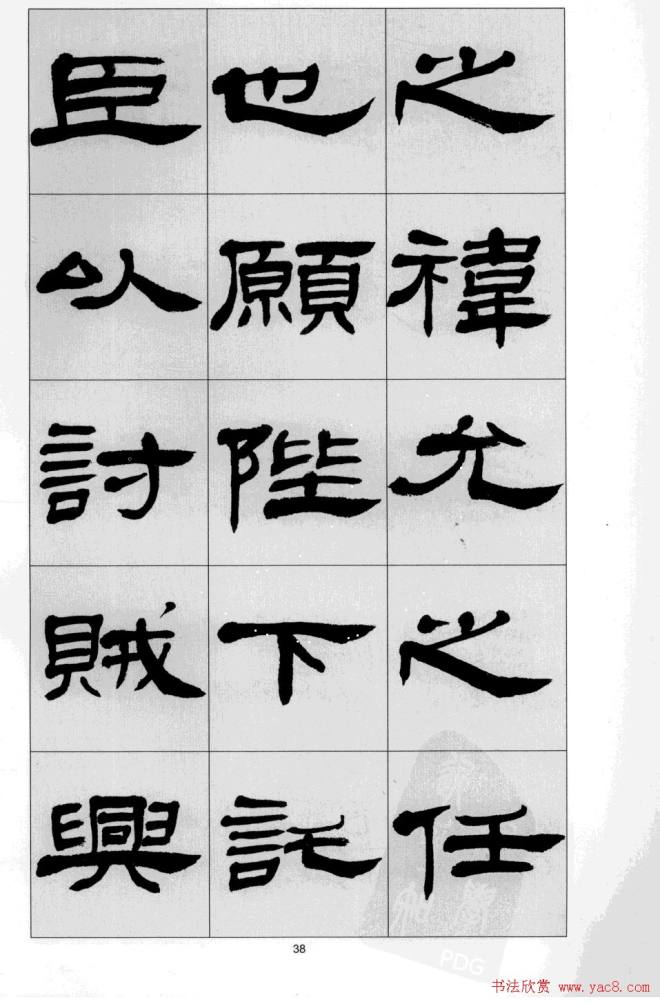 之禕允之任
也願陛下託
臣以討賊興
38
PDG
书法欣赏 www.yac8.com